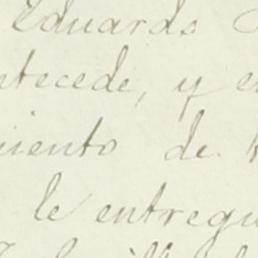 Eduardo
ntecede, y e
miento de
le entregu